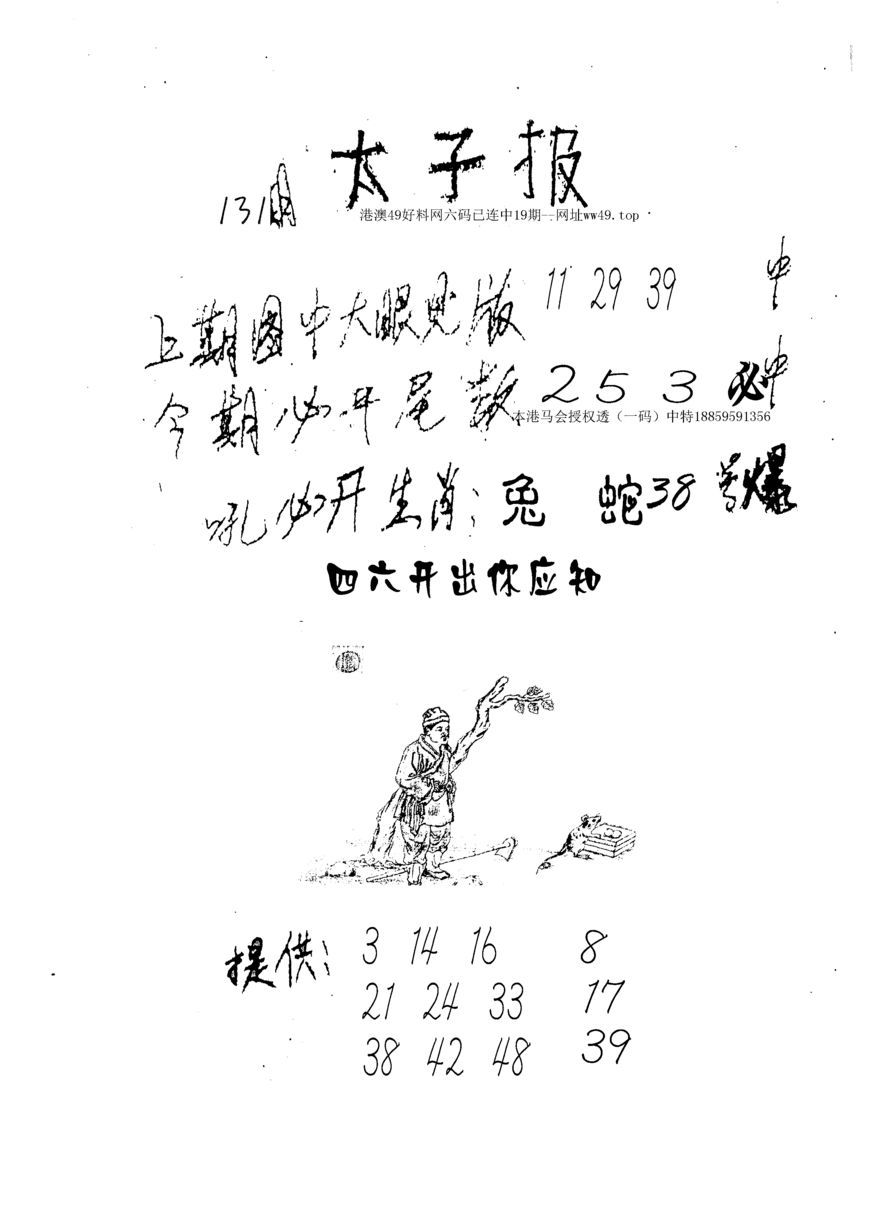 太子报
131期
港澳49好料网六码已连中19期--网址ww49.top
上期图中大眼见版 11 29 39 中
今期必开尾数 2 5 3 必中
本港马会授权透（一码）中特18859591356
吼必开生肖：兔 蛇38号爆
四六开出你应知
提供： 3 14 16 8
21 24 33 17
38 42 48 39